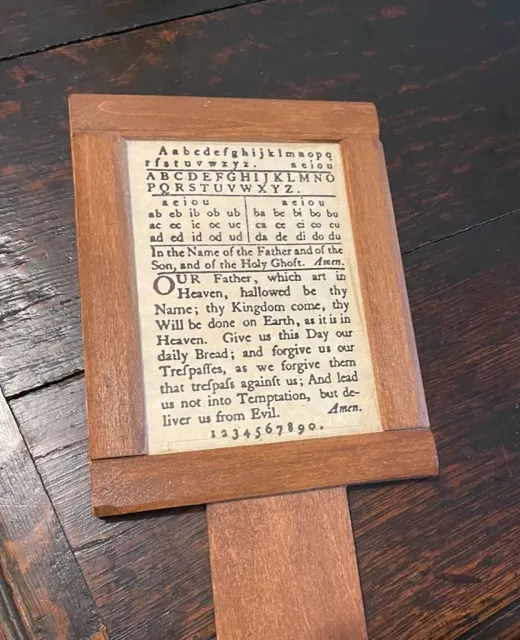 Aabcdefghijklmnopq
rſstuvwxyz. aeiou
ABCDEFGHIJKLMNO
PQRSTUVWXYZ.
a e i o u a e i o u
ab eb ib ob ub ba be bi bo bu
ac ec ic oc uc ca ce ci co cu
ad ed id od ud da de di do du
In the Name of the Father and of the
Son, and of the Holy Ghoſt. Amen.
OUR Father, which art in
Heaven, hallowed be thy
Name; thy Kingdom come, thy
Will be done on Earth, as it is in
Heaven. Give us this Day our
daily Bread; and forgive us our
Treſpaſſes, as we forgive them
that treſpaſs againſt us; And lead
us not into Temptation, but de-
liver us from Evil. Amen.
1234567890.